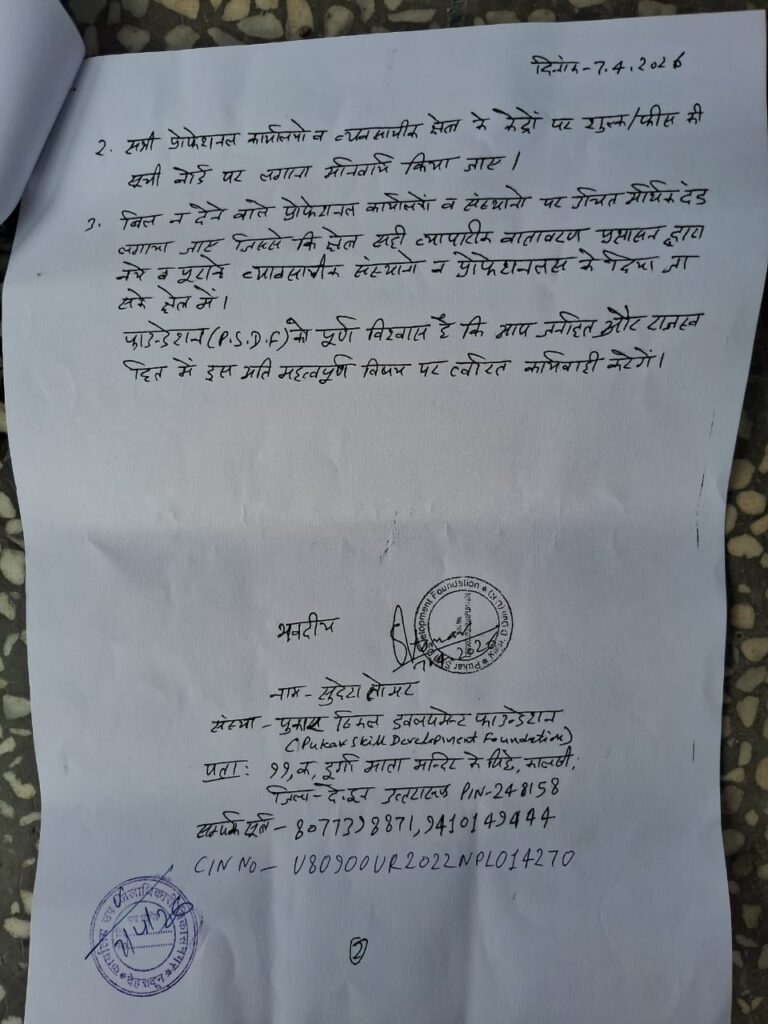 दिनांक-7.4.2026
2. सभी प्रोफेशनल कार्यालयो व व्यवसायीक क्षेत्र के केंद्रों पर शुल्क/फीस की
सूची बोर्ड पर लगाना अनिवार्य किया जाए।
3. बिल न देने वाले प्रोफेशनल कार्यालयों व संस्थानो पर उचित आर्थिक दंड
लगाया जाए जिससे कि क्षेत्र सही व्यापारीक वातावरण प्रसासन द्वारा
नये व पूराने व्यावसायीक संस्थानो व प्रोफेशनलस के दिया जा
सके क्षेत्र में।
फाउन्डेशन (P.S.D.F) को पूर्ण विश्वास है कि आप जनहित और राजस्व
हित में इस अति महत्वपूर्ण विषय पर त्वरित कार्यवाही करेगें।
भवदीय
Pukar Skill Development Foundation
नाम - सुदेश तोमर
संस्था - पुकार स्किल डवलपमेन्ट फाउन्डेशन
(Pukar Skill Development Foundation)
पता: 99, क, दुर्गा माता मन्दिर के पिछे, कालसी,
जिला - दे.दून उत्तराखण्ड PIN-248158
सम्पर्क सूत्र - 8077398871, 9410149444
CIN No - U80900UR2022NPL014270
कार्यालय उप जिलाधिकारी विकासनगर
देहरादून
2